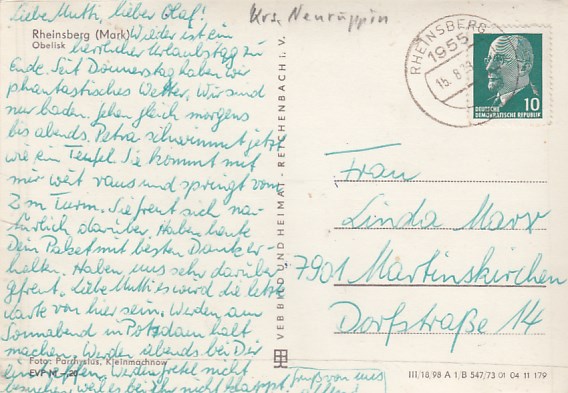 Liebe Mutti, lieber Olaf!
Krs. Neuruppin
Rheinsberg (Mark)
Obelisk
Wieder ist ein
herrlicher Urlaubstag zu
Ende. Seit Donnerstag haben wir
phantastisches Wetter. Wir sind
nur baden. Gehen gleich morgens
bis abends. Petra schwimmt jetzt
wie ein Teufel. Sie kommt mit
mir weit raus und springt vom
2m Turm. Sie freut sich na-
türlich darüber. Haben heute
Dein Paket mit besten Dank er-
halten. Haben uns sehr darüber
gefreut. Liebe Mutti es wird die letzte
Karte von hier sein. Werden am
Sonnabend in Potsdam halt
machen. Werden abends bei Dir
eintreffen. Werden Gretel nicht
besuchen, weil es bei ihr nicht klappt.
Gruß von uns
allen!
Foto: Parchysius, Kleinmachnow
EVP
VEB BILD UND HEIMAT · REICHENBACH i. V.
III/18/98 A 1/B 547/73 01 04 11 179
RHEINSBERG
1955
DEUTSCHE
DEMOKRATISCHE REPUBLIK
10
Frau
Linda Marx
7901 Martinskirchen
Dorfstraße 14